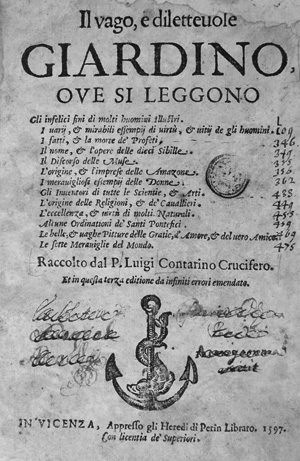 Il vago, e diletteuole
GIARDINO,
OVE SI LEGGONO
Gli infelici fini di molti huomini Illustri.
I uarij, & mirabili essempij di uirtù, & uitij de gli huomini.
I fatti, & la morte de' Profeti. 346
Il nome, & l'opere delle dieci Sibille.
Il Discorso delle Muse.
L'origine, & l'imprese delle Amazone. 356
I merauigliosi essempij delle Donne. 362
Gli Inuentori di tutte le Scientie, & Arti. 438
L'origine delle Religioni, & de' Cauallieri.
L'eccellenza, & uirtù di molti Naturali.
Alcune Ordinationi de' Santi Pontefici. 459
Le belle, & uaghe Pitture delle Gratie, d'Amore, & del vero Amico. 469
Le sette Merauiglie del Mondo. 475
Raccolto dal P. Luigi Contarino Crucifero.
Et in questa terza editione da infiniti errori emendato.
IN VICENZA, Appresso gli Heredi di Perin Libraro. 1597.
Con licentia de' Superiori.